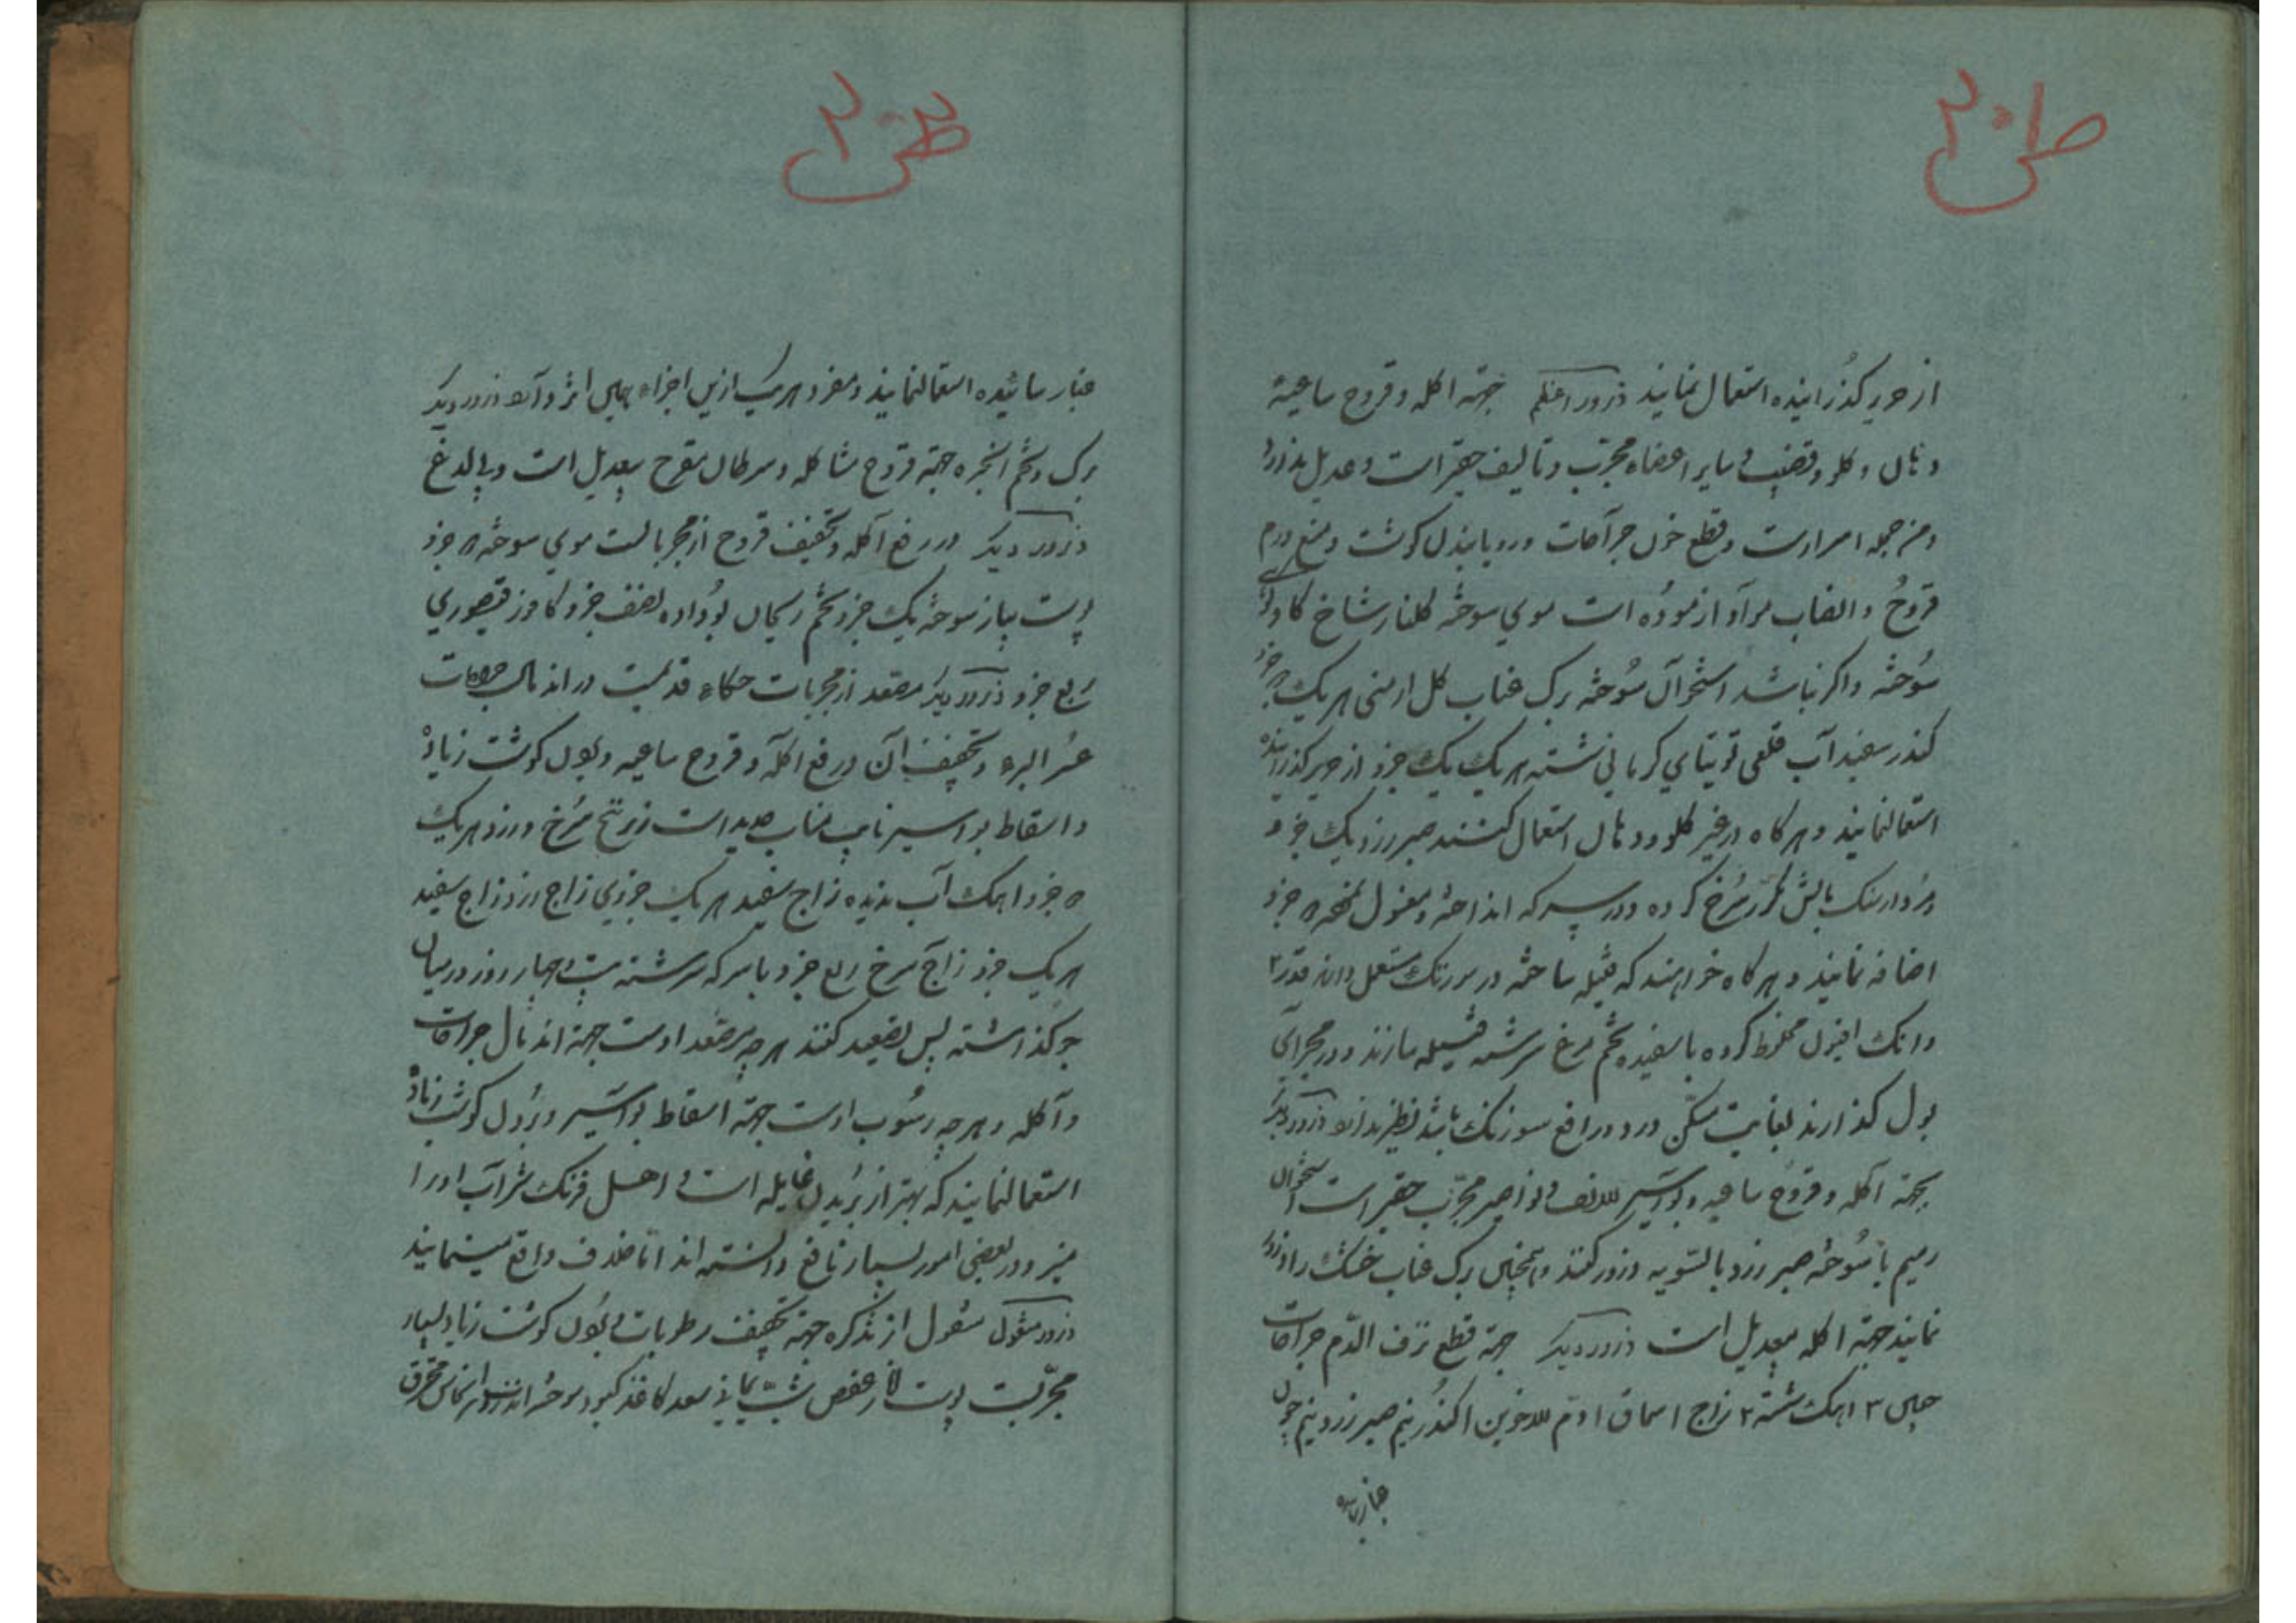 ص ۲۰۱
از حریر کذرانیده استعمال نمایند ذرور اعظم جهته اکله و قروح ساعیهٔ
و کلو و قضیب و سایر اعضاء مجرّب و تالیف حقیر است و عدیل ندارد
و قطع خون جراحات و رویانیدن کوشت و منع ورم
قروحُ و است موی سوخته کلنار شاخ کاو
سُوخته و اکر نباشد استخوان سُوخته برک عناب کل ارمنی هر یک جزو
کندر سفیدآب قلعی توتیای کرمانی شسته هر یک یک جزو از حریر کذرانیده
استعمالنمایند و هر کاه در غیر کلو و دهان استعمال کنند صبر زرد یک جزو
مرُدارسنک بآتش مکرّر سُرخ کرده و در سرکه انداخته و مغسول جزو
اضافه نمایند و هر کاه خواهند که فتیله ساخته در سوزنک مستعمل دارند قدر ۲
دانک افیون مخلوط کرده با سفیده تخم مرغ سرشته فتیله سازند و در مجرای
بول کذارند بغایت مسکّن درد و رافع سوزنک باشد ذرور دیکر
بجهته آکله و قروح ساعیه و بواسیر الانف و نواصیر مجرّب حقیر است استخوان
سُوخته صبر زرد بالسّویه ذرور کنند و همچنین برک عناب خشک را ذرور
نمایند جهته اکله بیعدیل است ذرور دیکر جهته قطع نزف الدّم جراحات
جبس ۳ اهک شسته ۲ زاج ۱ سماق ۱ دم الاخوین ۱ کندر نیم صبر زرد نیم چون
غبار سائیده
ص ۲۰۲
غبار سائیده استعمالنمایند و مفرد هر یک ازین اجزاء همین اثر دارد ذرور دیکر
برک و تخم انجره جهته قروح متاکله و سرطان متقرح بیعدیل است و بی لدغ
ذرور دیکر در رفع آکله و تجفیف قروح از مجرباتست موی سوخته ۳ جزو
پوست پیاز سوخته یک جزو تخم ریحان بُو داده نصف جزو کافور قیصوری
ربع جزو ذرور دیکر مصعد از مجربات حکماء قدیمست در اندمال جراحات
عسُر البرء و تجفیف آن و رفع اکله و قروح ساعیه و کوشت زیاد
و اسقاط بواسیر نایب مناب حدید است زرنیخ سُرخ و زرد هر یک
۳ جزو اهک آب ندیده زاج سفید هر یک جزوی زاج زرد زاج سفید
هر یک جزو زاج سرخ ربع جزو با سرکه سرشته بیست و چهار روز در میان
جو کذاشته پس تصعید کنند هر چه مصعد اوست جهته اندمال جراحات
و آکله و هر چه رسُوب اوست جهته اسقاط بواسیر و بردن کوشت زیاد
استعمالنمایند که بهتر از بُریدن و بیغایله است و اهل فرنک شرآب او را
نیز و در بعضی امور بسیار نافع دانسته اند امّا خلاف واقع مینمایند
ذرور منقول از تذکره جهته تجفیف رطوبات و کوشت زیاد بسیار
مجرّبست پوست انار عفص شبّ یمانی سعد کاغذ کبود سوخته